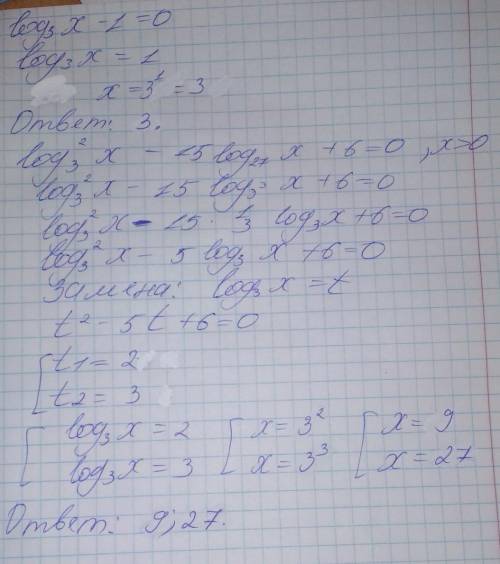 log₃x - 1 = 0
log₃x = 1
x = 3¹ = 3
Ответ: 3.
log₃²x - 15 log₂₇ x + 6 = 0 , x>0
log₃²x - 15 log₃³ x + 6 = 0
log₃²x - 15 · 1/3 log₃x + 6 = 0
log₃²x - 5 log₃ x + 6 = 0
Замена: log₃x = t
t² - 5t + 6 = 0
[ t1 = 2
t2 = 3
[ log₃x = 2 [ x = 3² [ x = 9
log₃x = 3 x = 3³ x = 27
Ответ: 9; 27.